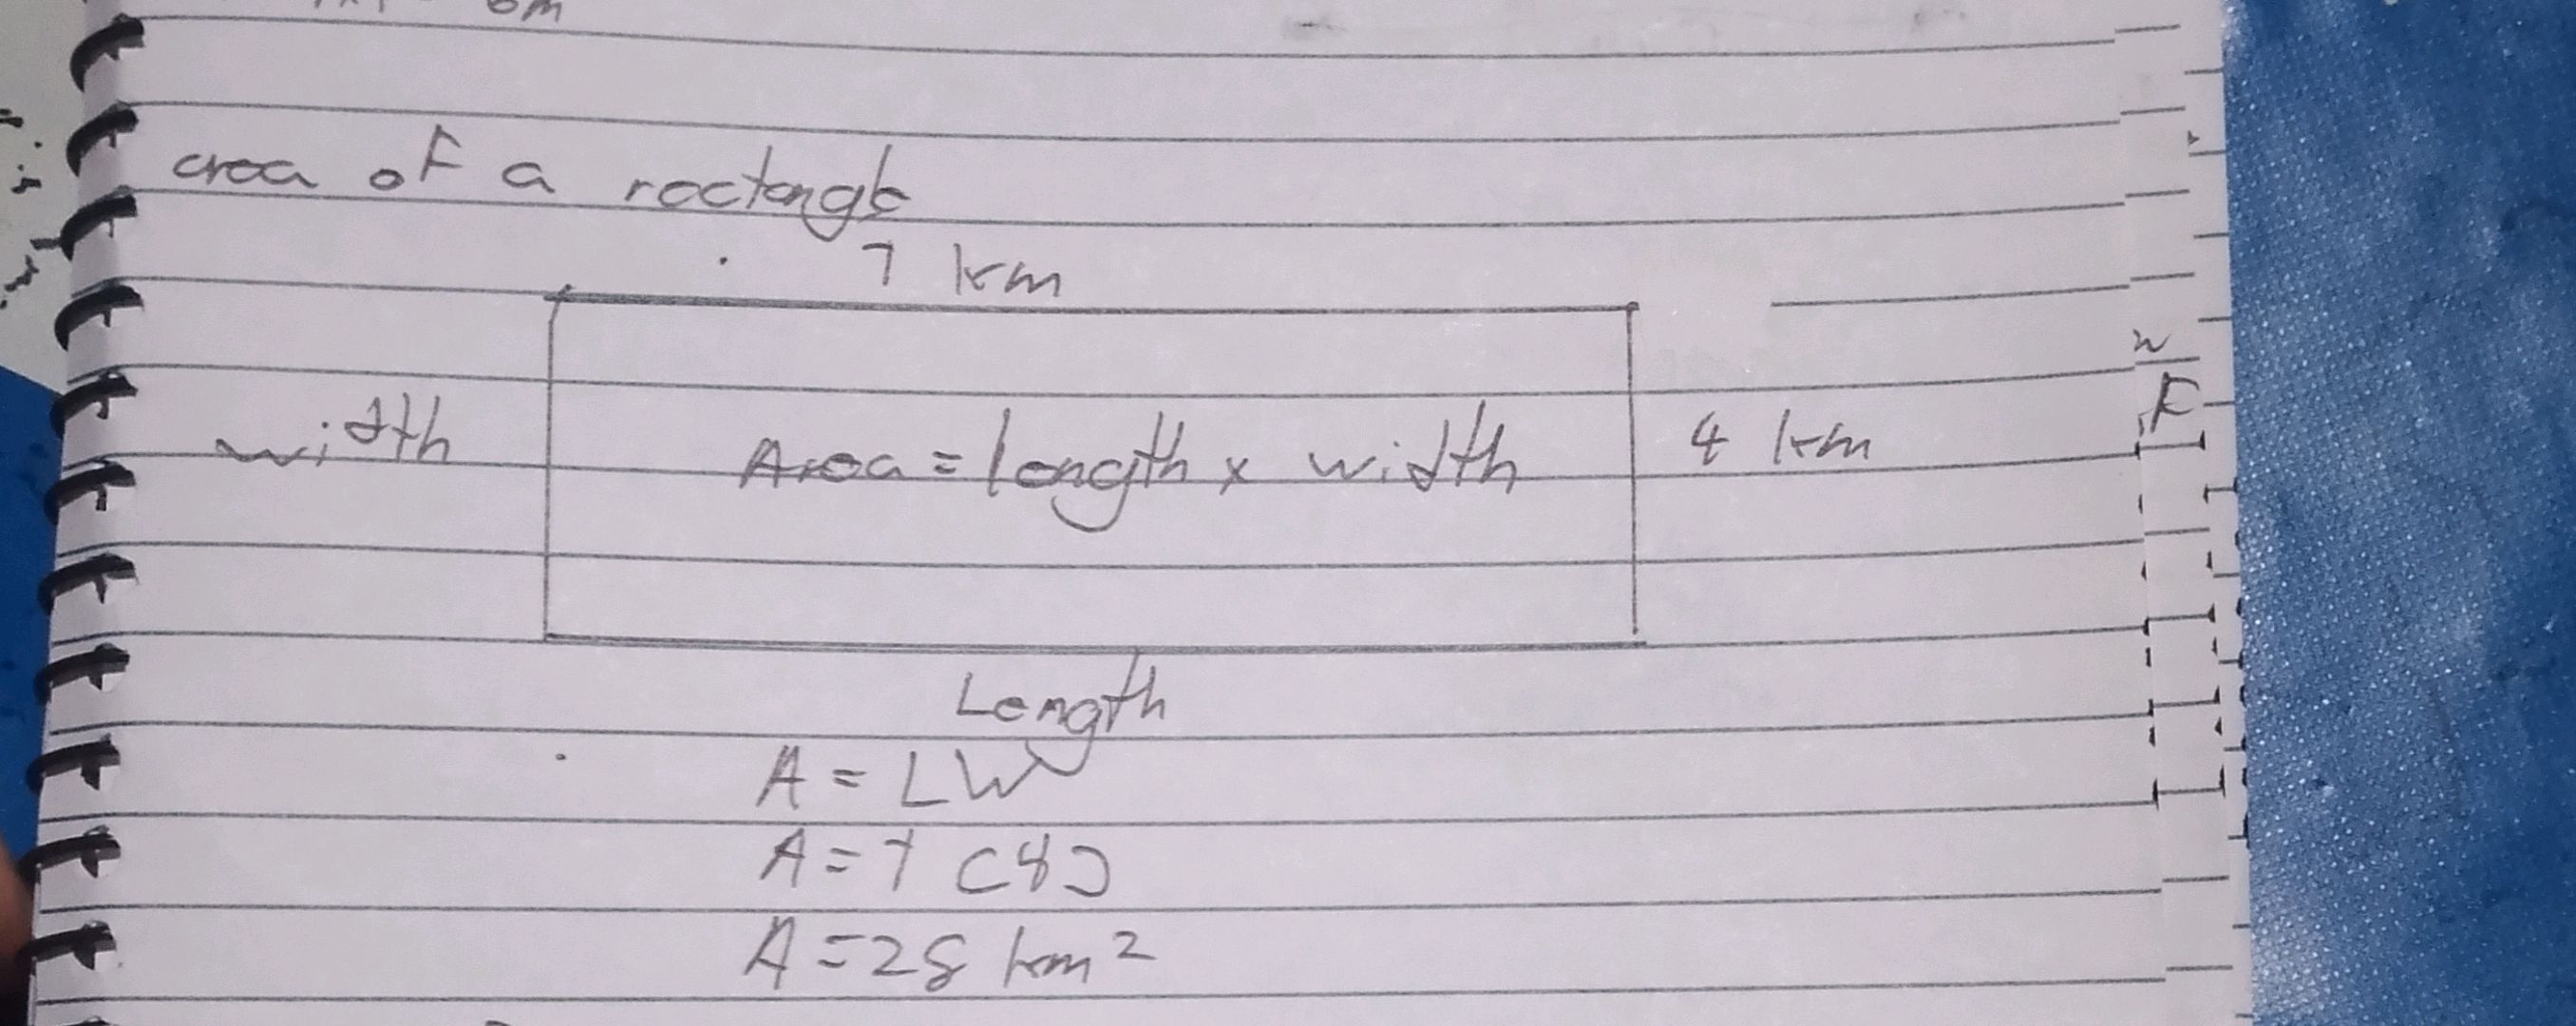 6m
area of a rectangle
7 km
width
Area = length x width
4 km
Length
A = LW
A = 7 (4)
A = 28 km²